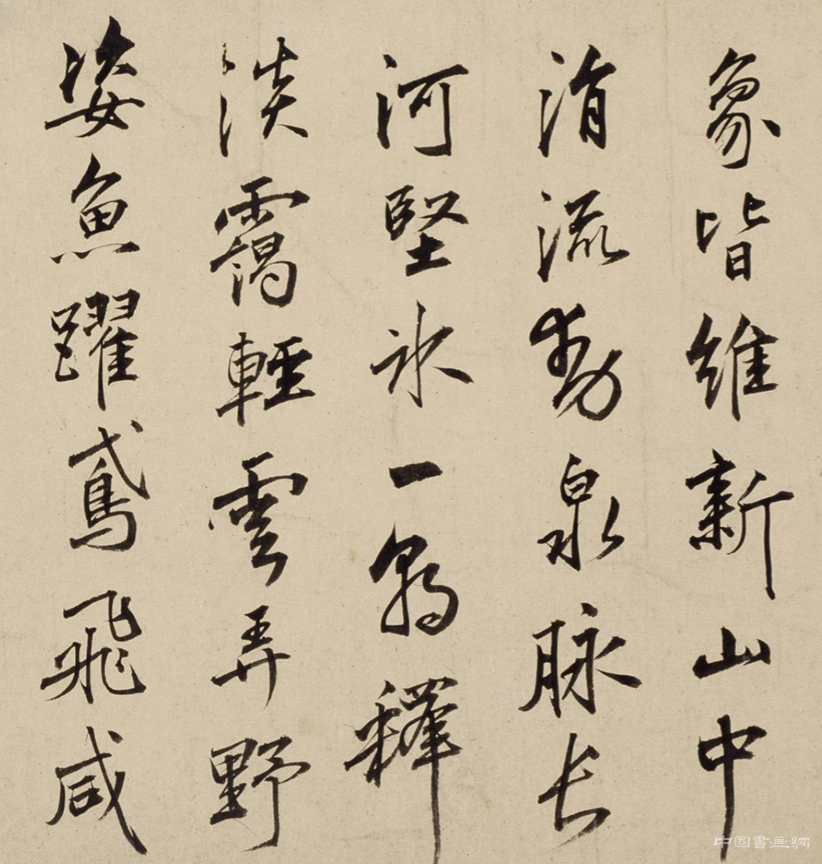 象皆維新山中
涓流動泉脉长
河堅冰一朝釋
淡靄輕雲弄野
姿魚躍鳶飛咸
中国書画網